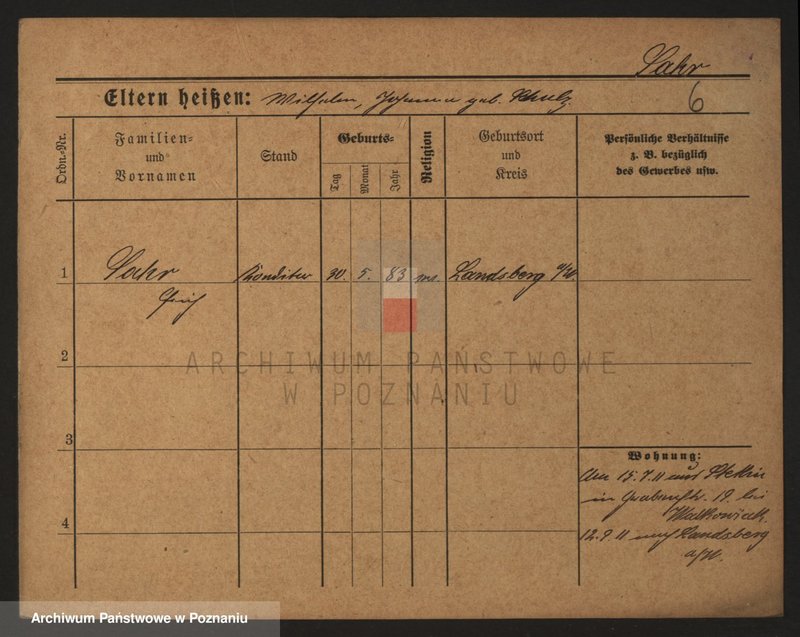 Sahr
Eltern heißen: Wilhelm, Johanna geb. Schulz.
6
Ordn.-Nr.
Familien-
und
Vornamen
Stand
Geburts-
Tag
Monat
Jahr
Religion
Geburtsort
und
Kreis
Persönliche Verhältnisse
z. B. bezüglich
des Gewerbes usw.
1
Sahr
Konditor
30. 5. 83
Landsberg a/W.
2
ARCHIWUM PAŃSTWOWE
W POZNANIU
3
Wohnung:
den 15.7.11 Stettin
in 19. bei
Walkowiak.
4
12.9.11 nach Landsberg
a/W.
Archiwum Państwowe w Poznaniu